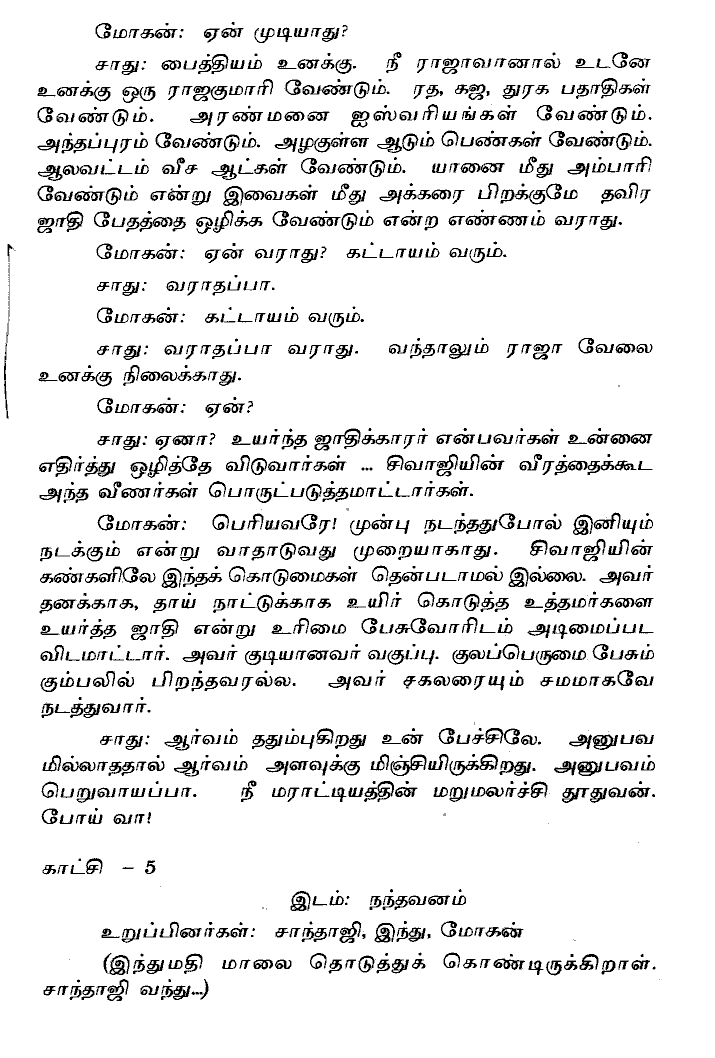 மோகன்: ஏன் முடியாது?
சாது: பைத்தியம் உனக்கு. நீ ராஜாவானால் உடனே
உனக்கு ஒரு ராஜகுமாரி வேண்டும். ரத, கஜ, துரக பதாதிகள்
வேண்டும். அரண்மனை ஐஸ்வரியங்கள் வேண்டும்.
அந்தப்புரம் வேண்டும். அழகுள்ள ஆடும் பெண்கள் வேண்டும்.
ஆலவட்டம் வீச ஆட்கள் வேண்டும். யானை மீது அம்பாரி
வேண்டும் என்று இவைகள் மீது அக்கரை பிறக்குமே தவிர
ஜாதி பேதத்தை ஒழிக்க வேண்டும் என்ற எண்ணம் வராது.
மோகன்: ஏன் வராது? கட்டாயம் வரும்.
சாது: வராதப்பா.
மோகன்: கட்டாயம் வரும்.
சாது: வராதப்பா வராது. வந்தாலும் ராஜா வேலை
உனக்கு நிலைக்காது.
மோகன்: ஏன்?
சாது: ஏனா? உயர்ந்த ஜாதிக்காரர் என்பவர்கள் உன்னை
எதிர்த்து ஒழித்தே விடுவார்கள் ... சிவாஜியின் வீரத்தைக்கூட
அந்த வீணர்கள் பொருட்படுத்தமாட்டார்கள்.
மோகன்: பெரியவரே! முன்பு நடந்ததுபோல் இனியும்
நடக்கும் என்று வாதாடுவது முறையாகாது. சிவாஜியின்
கண்களிலே இந்தக் கொடுமைகள் தென்படாமல் இல்லை. அவர்
தனக்காக, தாய் நாட்டுக்காக உயிர் கொடுத்த உத்தமர்களை
உயர்த்த ஜாதி என்று உரிமை பேசுவோரிடம் அடிமைப்பட
விடமாட்டார். அவர் குடியானவர் வகுப்பு. குலப்பெருமை பேசும்
கும்பலில் பிறந்தவரல்ல. அவர் சகலரையும் சமமாகவே
நடத்துவார்.
சாது: ஆர்வம் ததும்புகிறது உன் பேச்சிலே. அனுபவ
மில்லாததால் ஆர்வம் அளவுக்கு மிஞ்சியிருக்கிறது. அனுபவம்
பெறுவாயப்பா. நீ மராட்டியத்தின் மறுமலர்ச்சி தூதுவன்.
போய் வா!
காட்சி – 5
இடம்: நந்தவனம்
உறுப்பினர்கள்: சாந்தாஜி, இந்து, மோகன்
(இந்துமதி மாலை தொடுத்துக் கொண்டிருக்கிறாள்.
சாந்தாஜி வந்து...)